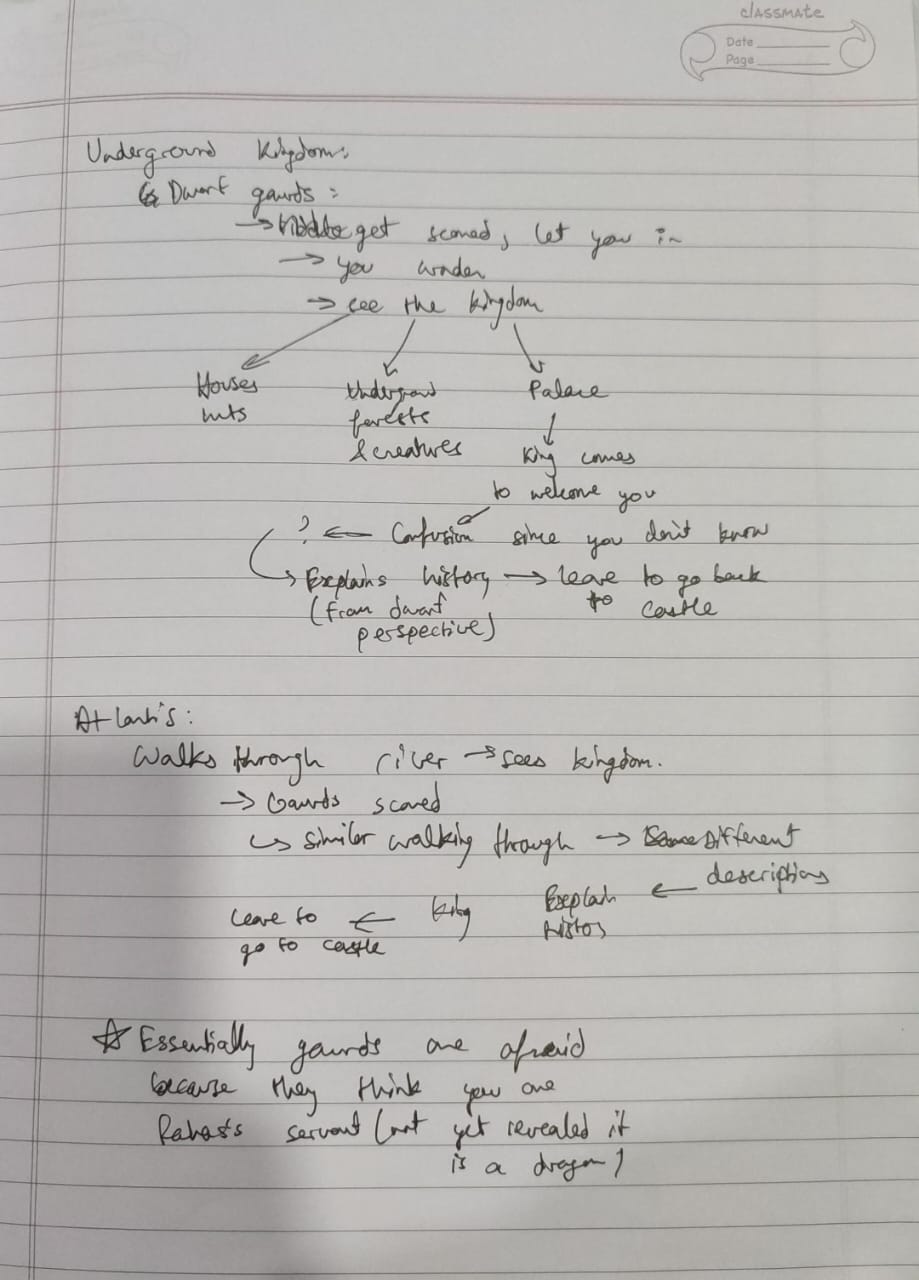 classmate
Date
Page
Underground Kingdom:
↳ Dwarf gaurds :
→ get scared, let you in
→ you wander
→ see the kingdom
Houses Undergroud Palace
huts forests
& creatures King comes
to welcome you
? ← Confusion since you don't know
↳ Explains history → leave to go back
(from dwarf to castle
perspective)
Atlantis:
Walks through river → sees kingdom.
→ Gaurds scared
↳ Similar walking through → Different
← descriptions
leave to ← King Explain
go to castle
☆ Essentially gaurds are afraid
because they think you are
servant (not yet revealed it
is a dragon)